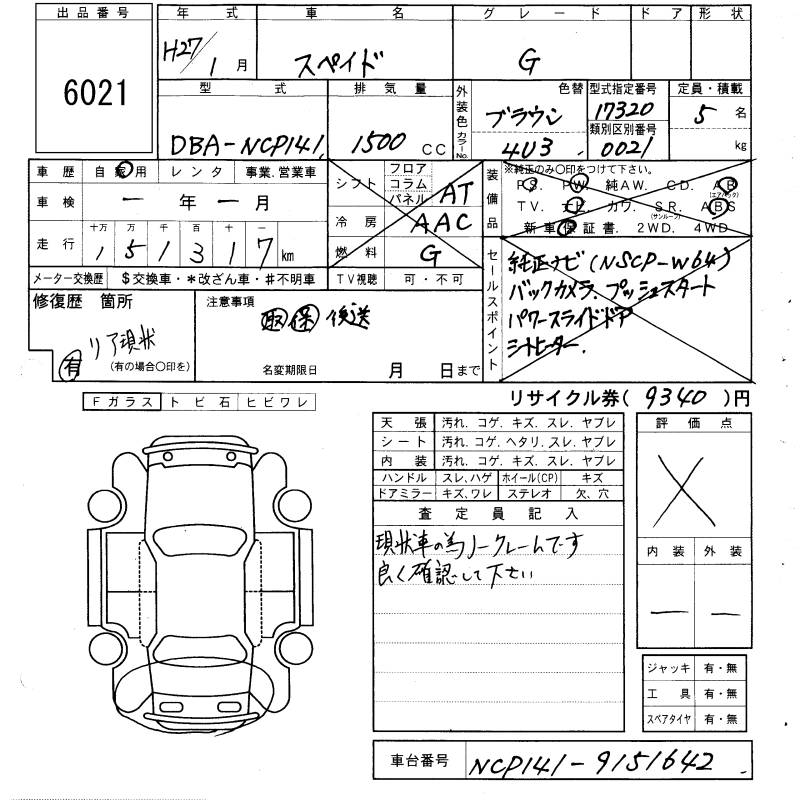 出品番号
6021
年 式
H27/1 月
車 名
スペイド
グレード
G
ドア
形状
型 式
DBA-NCP141
排気量
1500 CC
外装色
カラーNo.
色替
ブラウン
4U3
型式指定番号
17320
類別区別番号
0021
定員・積載
5 名
kg
車歴 自家用 レンタ 事業.営業車
車検 ー 年 ー 月
走行 十万 万 千 百 十 一
151317 km
メーター交換歴 $交換車・*改ざん車・#不明車
シフト フロア コラム パネル AT
冷房 AAC
燃料 G
TV視聴 可・不可
装備品
※純正のみ〇印をつけて下さい。
PS. PW. 純AW. CD. AB (エアバック)
TV. ナビ カワ. SR. (サンルーフ) ABS
新車保証書. 2WD. 4WD
セールスポイント
純正ナビ(NSCP-W64)
バックカメラ、プッシュスタート
パワースライドドア
シートヒーター
修復歴 箇所
有 リア現状
(有の場合〇印を)
注意事項
取 保 後送
名変期限日 月 日まで
リサイクル券( 9340 )円
Fガラス トビ石 ヒビワレ
天張 汚れ. コゲ. キズ. スレ. ヤブレ
シート 汚れ. コゲ. ヘタリ. スレ. ヤブレ
内装 汚れ. コゲ. キズ. スレ. ヤブレ
ハンドル スレ、ハゲ ホイール(CP) キズ
ドアミラー キズ、ワレ ステレオ 欠、穴
査定員記入
現状車の為ノークレームです
良く確認して下さい
評価点
内装 外装
ー ー
ジャッキ 有・無
工具 有・無
スペアタイヤ 有・無
車台番号 NCP141-9151642